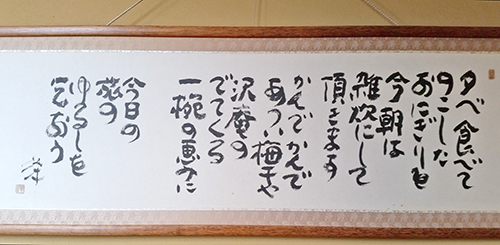 夕べ食べて
のこした
おにぎりを
今朝は
雑炊にして
頂きます
かんでかんで
あつい梅干や
沢庵の
でてくる
一椀の恵みに
今日の
旅の
ゆるしを
思おう